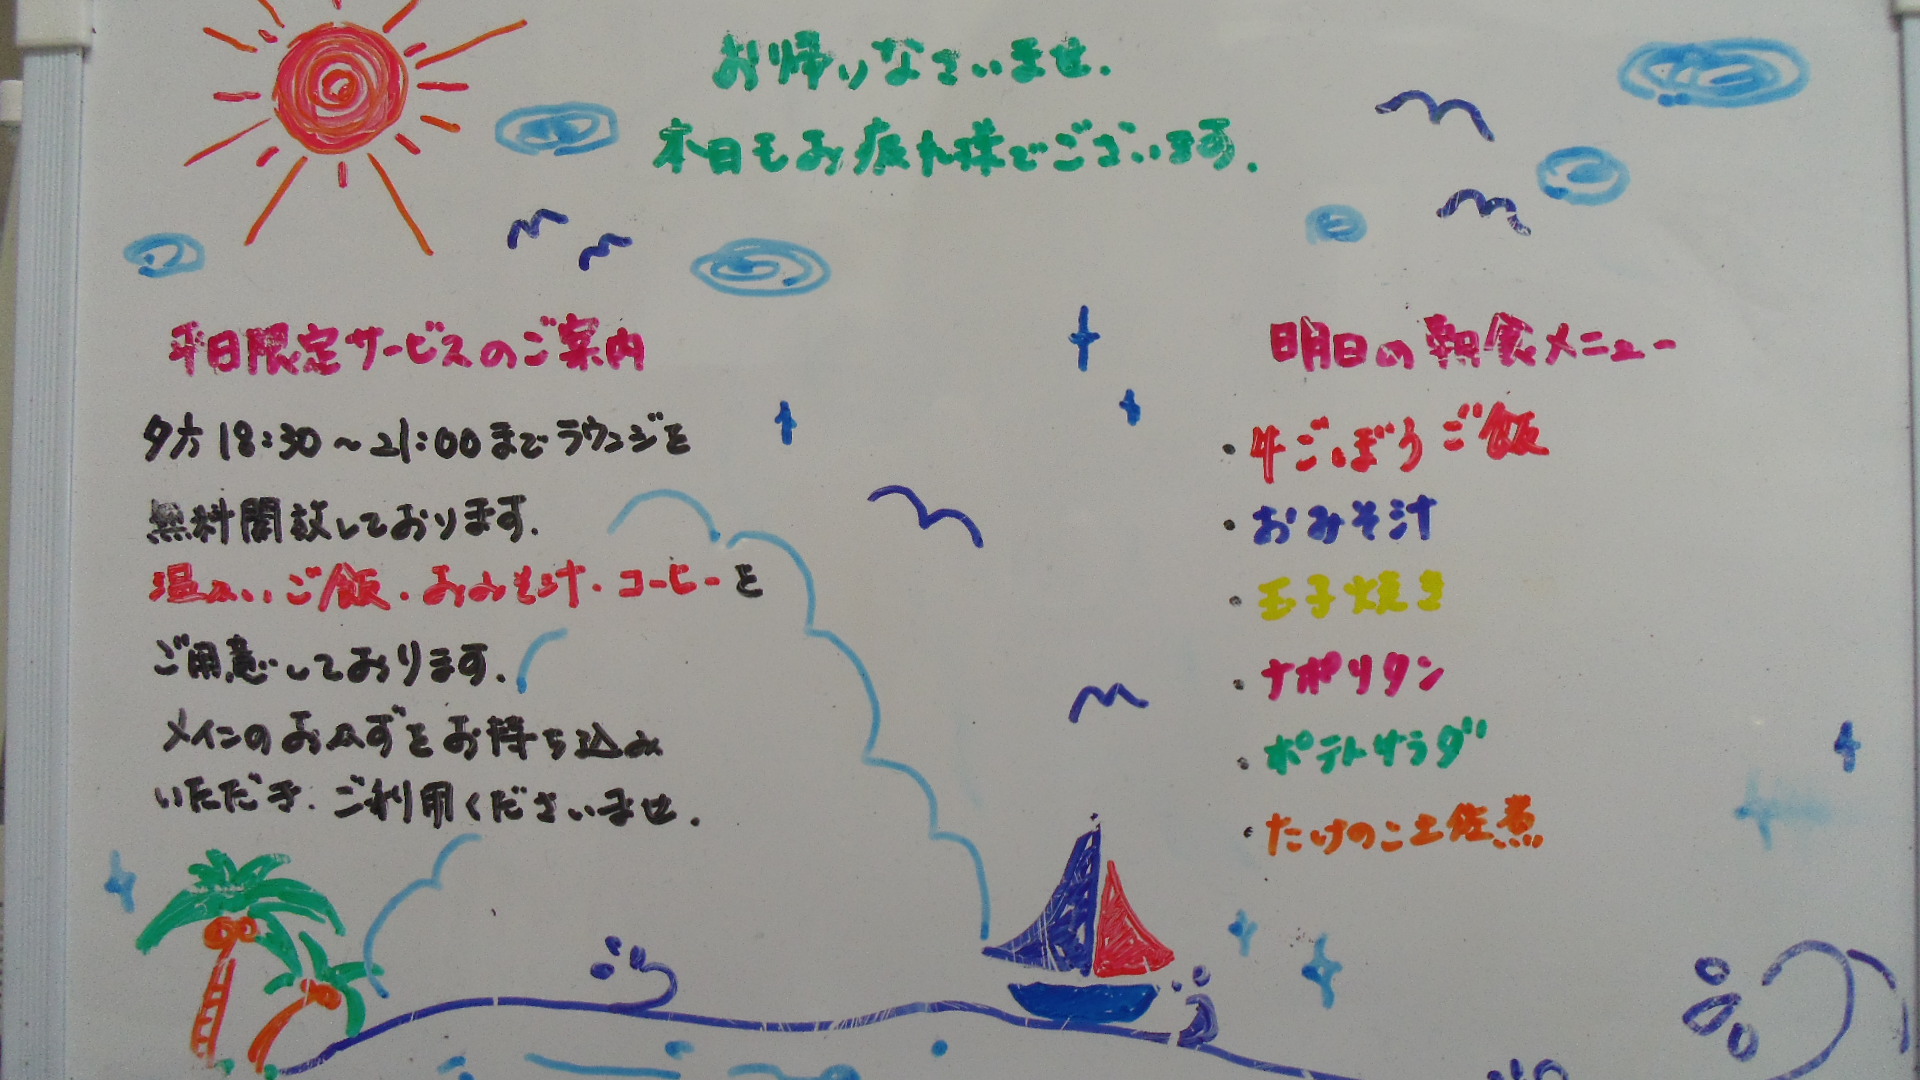 お帰りなさいませ.
本日もお疲れ様でございます.
平日限定サービスのご案内
夕方18:30～21:00までラウンジを
無料開放しております.
温かいご飯.おみそ汁.コーヒーを
ご用意しております.
メインのおかずをお持ち込み
いただき.ご利用くださいませ.
明日の朝食メニュー
・牛ごぼうご飯
・おみそ汁
・玉子焼き
・ナポリタン
・ポテトサラダ
・たけのこ土佐煮